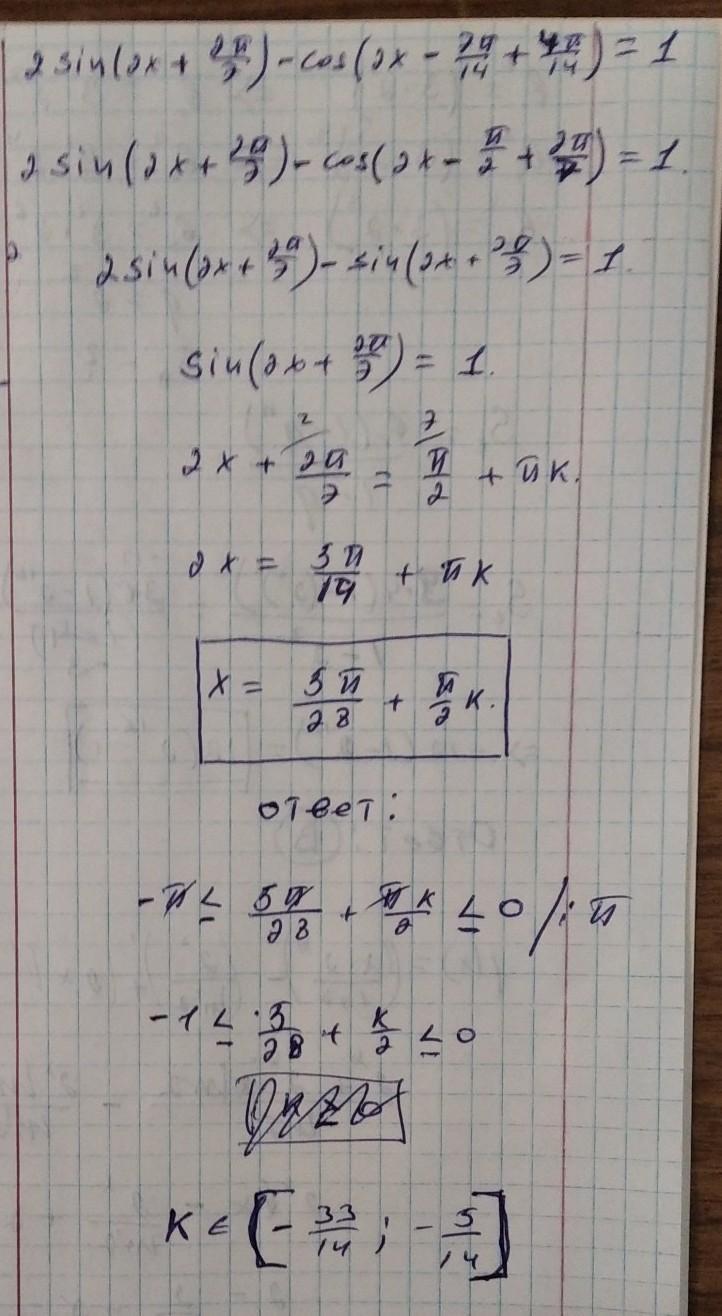 2 sin(2x + 2π/7) - cos(2x - 7π/14 + 4π/14) = 1
2 sin(2x + 2π/7) - cos(2x - π/2 + 2π/7) = 1.
2 sin(2x + 2π/7) - sin(2x + 2π/7) = 1.
sin(2x + 2π/7) = 1.
2x + 2π/7 = π/2 + πk.
2x = 3π/14 + πk
x = 3π/28 + π/2 k.
ответ:
-π ≤ 5π/28 + πk/2 ≤ 0 /: π
-1 ≤ 5/28 + k/2 ≤ 0
k ∈ [- 33/14 ; - 5/14]